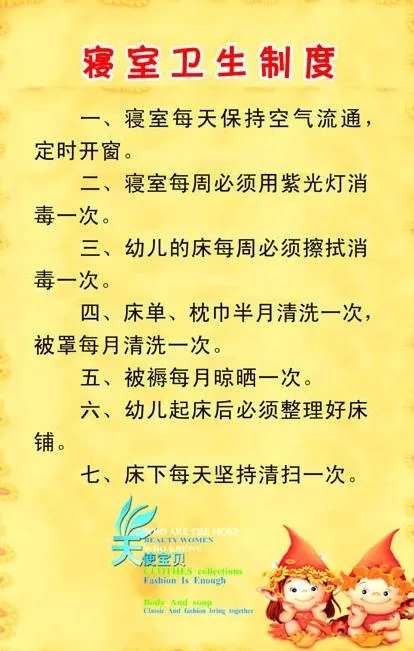 寝室卫生制度
一、寝室每天保持空气流通，
定时开窗。
二、寝室每周必须用紫光灯消
毒一次。
三、幼儿的床每周必须擦拭消
毒一次。
四、床单、枕巾半月清洗一次，
被罩每月清洗一次。
五、被褥每月晾晒一次。
六、幼儿起床后必须整理好床
铺。
七、床下每天坚持清扫一次。
WHO ARE THE MOST
BEAUTY WOMEN
WHO KNOWS
天使宝贝
CLOTHES collections
Fashion Is Enough
Body And soup
Classic And fashion bring together